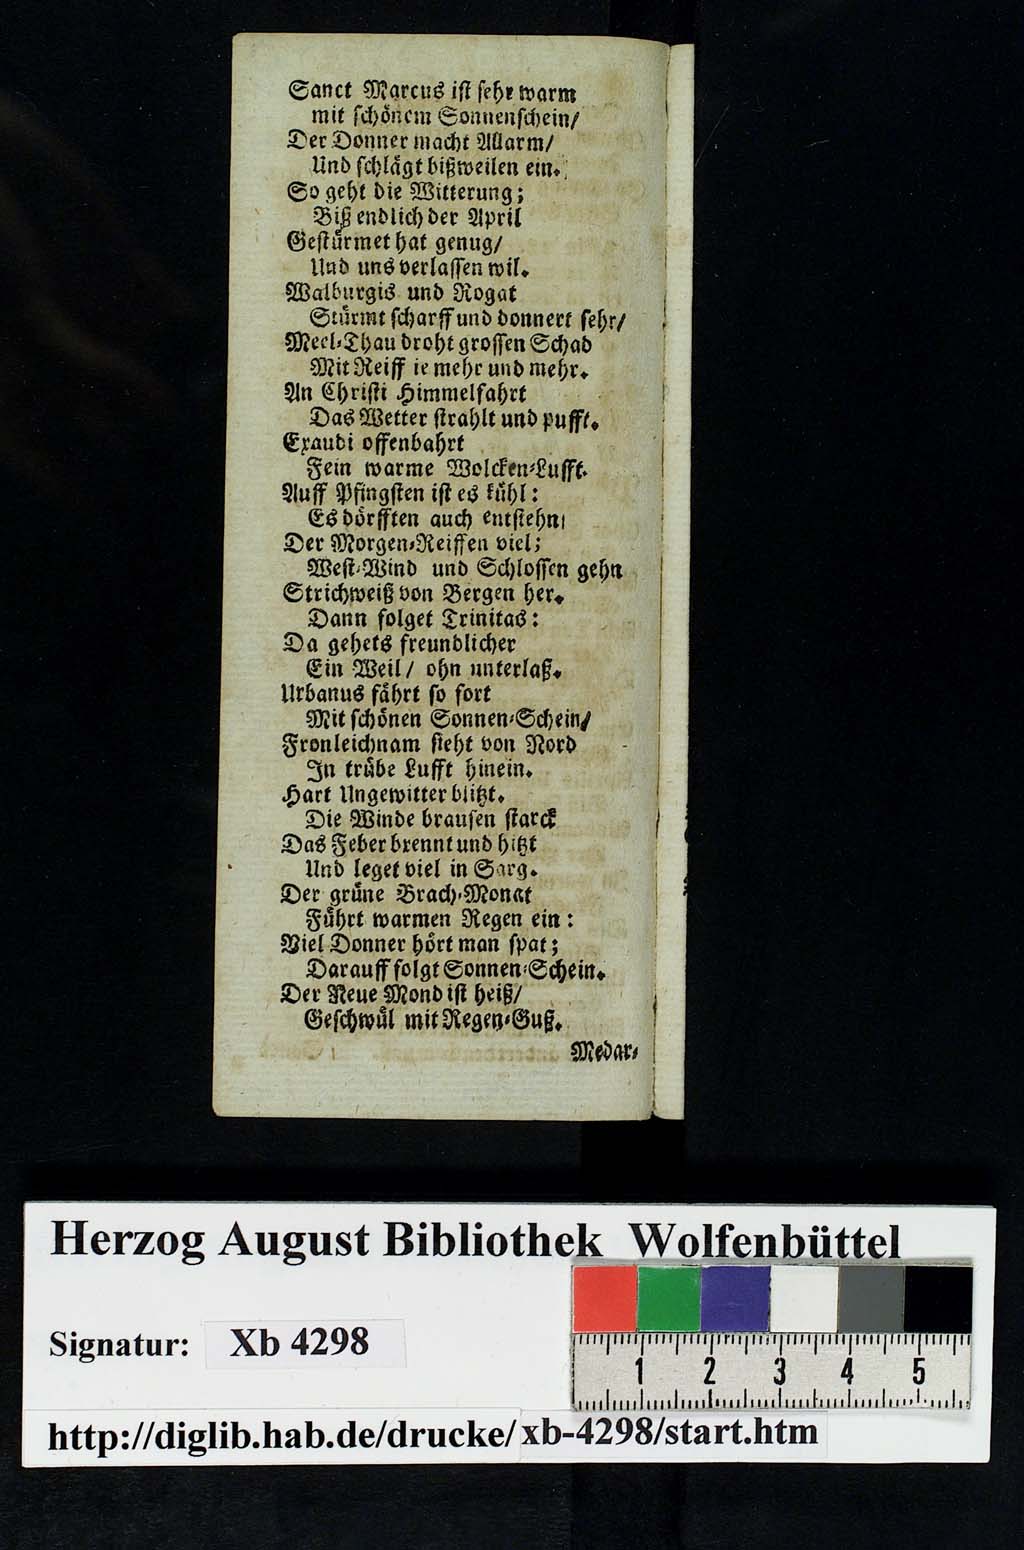 Sanct Marcus ist sehr warm
mit schönem Sonnenschein/
Der Donner macht Allarm/
Und schlägt bißweilen ein.
So geht die Witterung;
Biß endlich der April
Gestürmet hat genug/
Und uns verlassen wil.
Walburgis und Rogat
Stürmt scharff und donnert sehr/
Meel-Thau droht grossen Schad
Mit Reiff ie mehr und mehr.
An Christi Himmelfahrt
Das Wetter strahlt und pufft.
Exaudi offenbahrt
Fein warme Wolcken-Lufft.
Auff Pfingsten ist es kühl:
Es dörfften auch entstehn
Der Morgen-Reiffen viel;
West-Wind und Schlossen gehn
Strichweiß von Bergen her.
Dann folget Trinitas:
Da gehets freundlicher
Ein Weil/ ohn unterlaß.
Urbanus fährt so fort
Mit schönen Sonnen-Schein/
Fronleichnam sieht von Nord
In trübe Lufft hinein.
Hart Ungewitter blitzt.
Die Winde brausen starck
Das Feber brennt und hitzt
Und leget viel in Sarg.
Der grüne Brach-Monat
Führt warmen Regen ein:
Viel Donner hört man spat;
Darauff folgt Sonnen-Schein.
Der Neue Mond ist heiß/
Geschwül mit Regen-Guß.
Medar-
Herzog August Bibliothek Wolfenbüttel
Signatur: Xb 4298
1 2 3 4 5
http://diglib.hab.de/drucke/xb-4298/start.htm